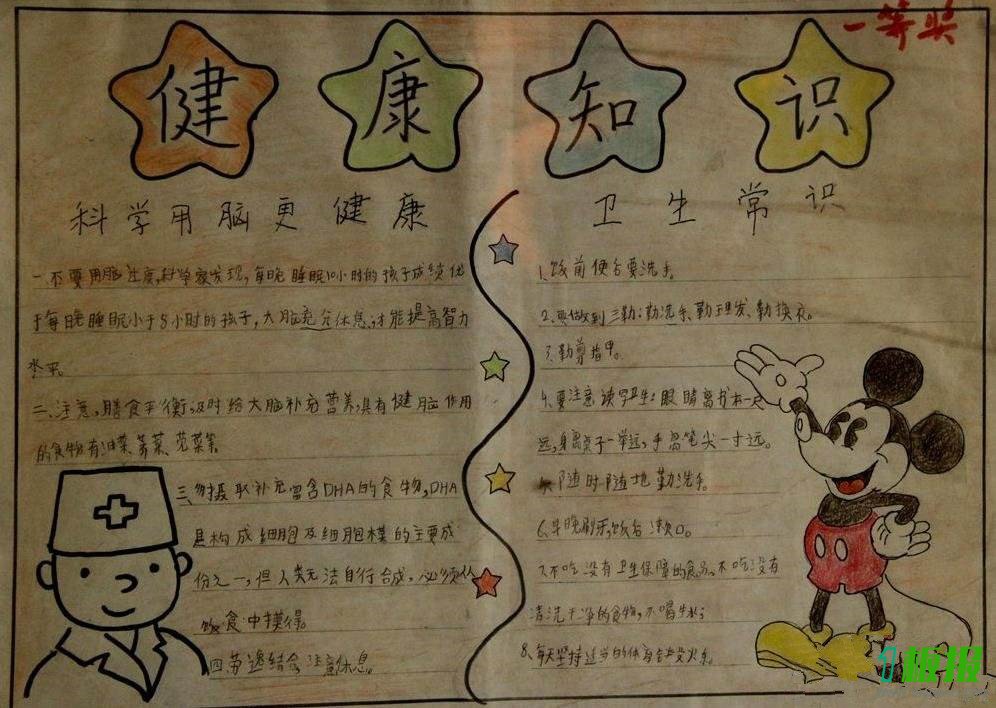 一等奖
健康知识
科学用脑更健康
一、不要用脑过度,科学家发现,每晚睡眠10小时的孩子成绩优
于每晚睡眠小于8小时的孩子,大脑充分休息,才能提高智力
水平。
二、注意,膳食平衡,及时给大脑补充营养,具有健脑作用
的食物有油菜、荠菜、菠菜等。
三、多摄取补充富含DHA的食物,DHA
是构成细胞及细胞膜的主要成
份之一,但人类无法自行合成,必须从
饮食中摸得。
四、劳逸结合,注意休息。
卫生常识
1、饭前便后要洗手。
2、要做到三勤:勤洗手、勤理发、勤换衣。
3、勤剪指甲。
4、要注意读写卫生:眼睛离书本一尺
远,身离桌子一拳远,手离笔尖一寸远。
随时随地勤洗手。
6、早晚刷牙,饭后漱口。
7、不吃没有卫生保障的食品,不吃没有
清洗干净的食物,不喝生水;
8、每天坚持适当的体育
板报